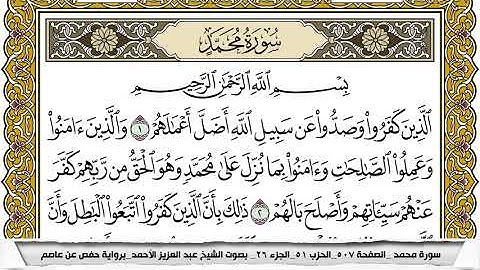 سُورَةُ مُحَمَّدٍ
بِسْمِ ٱللَّهِ ٱلرَّحْمَٰنِ ٱلرَّحِيمِ
ٱلَّذِينَ كَفَرُوا۟ وَصَدُّوا۟ عَن سَبِيلِ ٱللَّهِ أَضَلَّ أَعْمَٰلَهُمْ ١ وَٱلَّذِينَ ءَامَنُوا۟
وَعَمِلُوا۟ ٱلصَّٰلِحَٰتِ وَءَامَنُوا۟ بِمَا نُزِّلَ عَلَىٰ مُحَمَّدٍ وَهُوَ ٱلْحَقُّ مِن رَّبِّهِمْ كَفَّرَ
عَنْهُمْ سَيِّـَٔاتِهِمْ وَأَصْلَحَ بَالَهُمْ ٢ ذَٰلِكَ بِأَنَّ ٱلَّذِينَ كَفَرُوا۟ ٱتَّبَعُوا۟ ٱلْبَٰطِلَ وَأَنَّ
سورة محمد _الصفحة ٥٠٧_الحزب ٥١_الجزء ٢٦_ بصوت الشيخ عبد العزيز الأحمد_برواية حفص عن عاصم